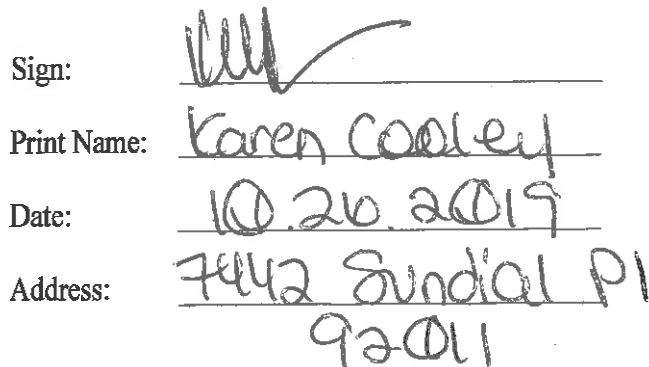 Sign:
Print Name: Karen Cooley
Date: 10.26.2019
Address: 7442 Sundial Pl
92011